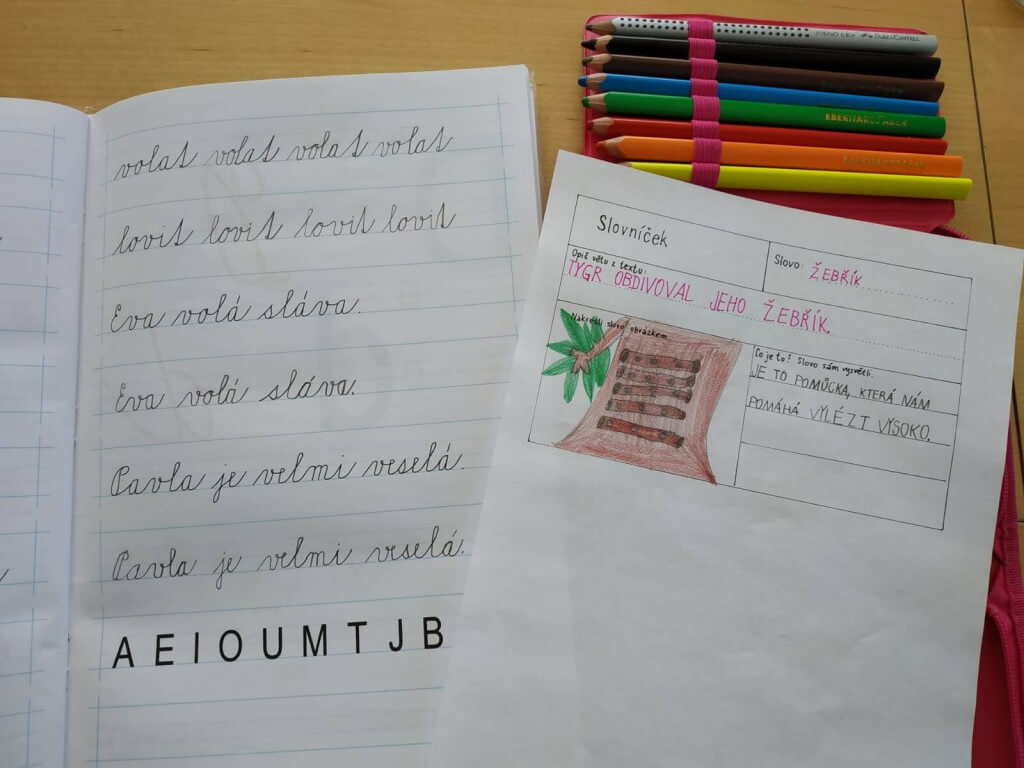 volat volat volat volat
lovit lovit lovit lovit
Eva volá sláva.
Eva volá sláva.
Pavla je velmi veselá.
Pavla je velmi veselá.
A E I O U M T J B
Slovníček
Slovo: ŽEBŘÍK
Opiš větu z textu:
TYGR OBDIVOVAL JEHO ŽEBŘÍK.
Nakresli slovo obrázkem.
Co je to? Slovo sám vysvětli.
JE TO POMŮCKA, KTERÁ NÁM
POMÁHÁ VYLÉZT VYSOKO.
EBERHARD FABER